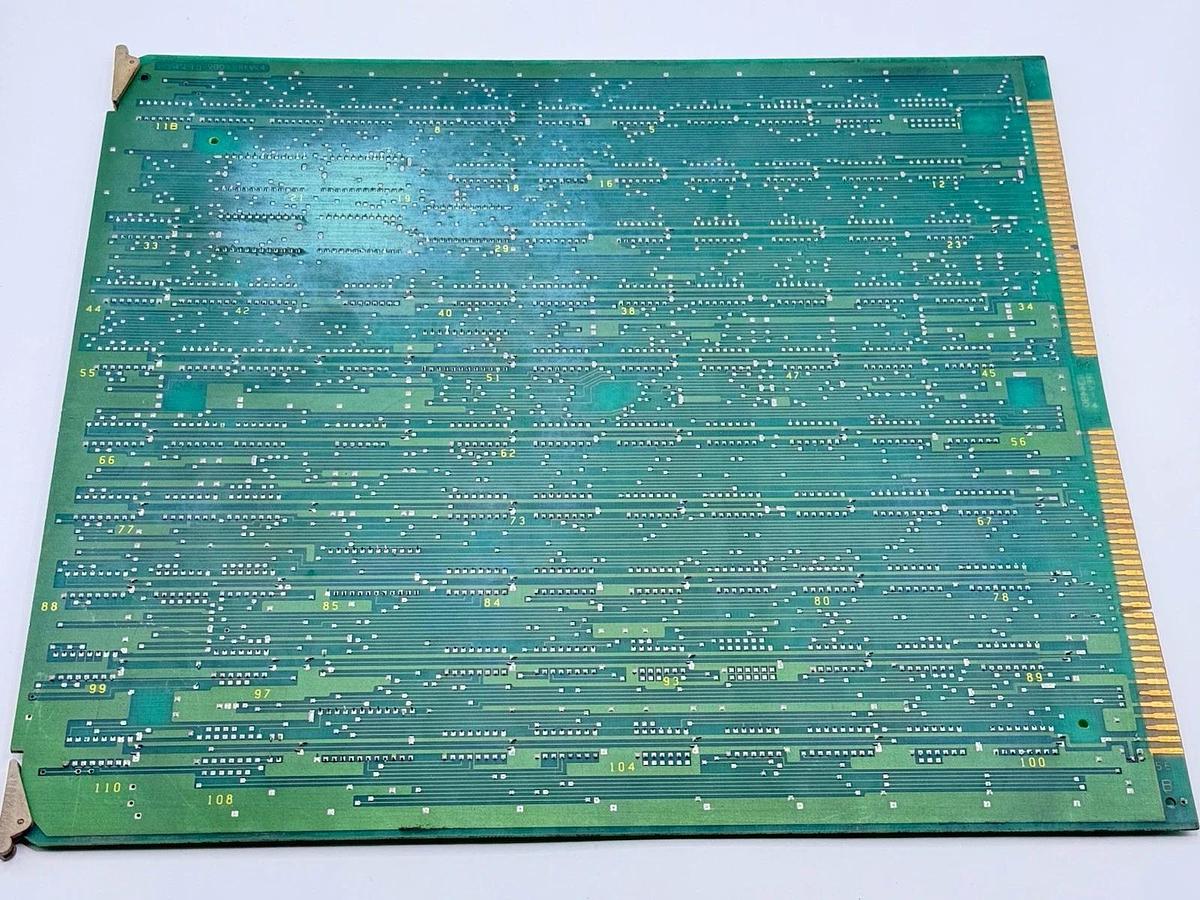 11B 8 5
21 19 18 16 12
33 29 23
44 42 40 38 34
55 51 47 45
66 62 56
77 73 67
88 85 84 80 78
99 97 93 89
110 108 104 100
B